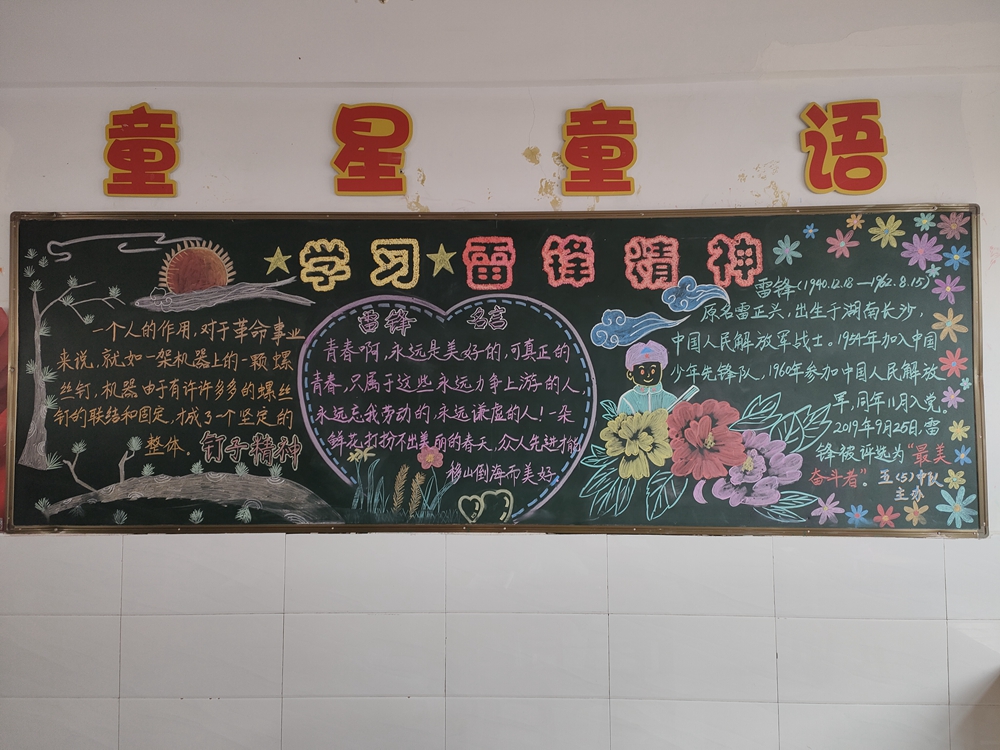 童星童语
学习雷锋精神
一个人的作用，对于革命事业
来说，就如一架机器上的一颗螺
丝钉，机器由于有许许多多的螺丝
钉的联结和固定，才成了一个坚定的
整体。钉子精神
雷锋 名言
青春啊，永远是美好的，可真正的
青春，只属于这些永远力争上游的人，
永远忘我劳动的，永远谦虚的人！一朵
鲜花打扮不出美丽的春天，众人先进才能
移山倒海而美好。
雷锋（1940.12.18—1962.8.15）
原名雷正兴，出生于湖南长沙，
中国人民解放军战士。1954年加入中国
少年先锋队，1960年参加中国人民解放
军，同年11月入党。
2019年9月25日，雷
锋被评选为“最美
奋斗者”。五（5）中队
主办